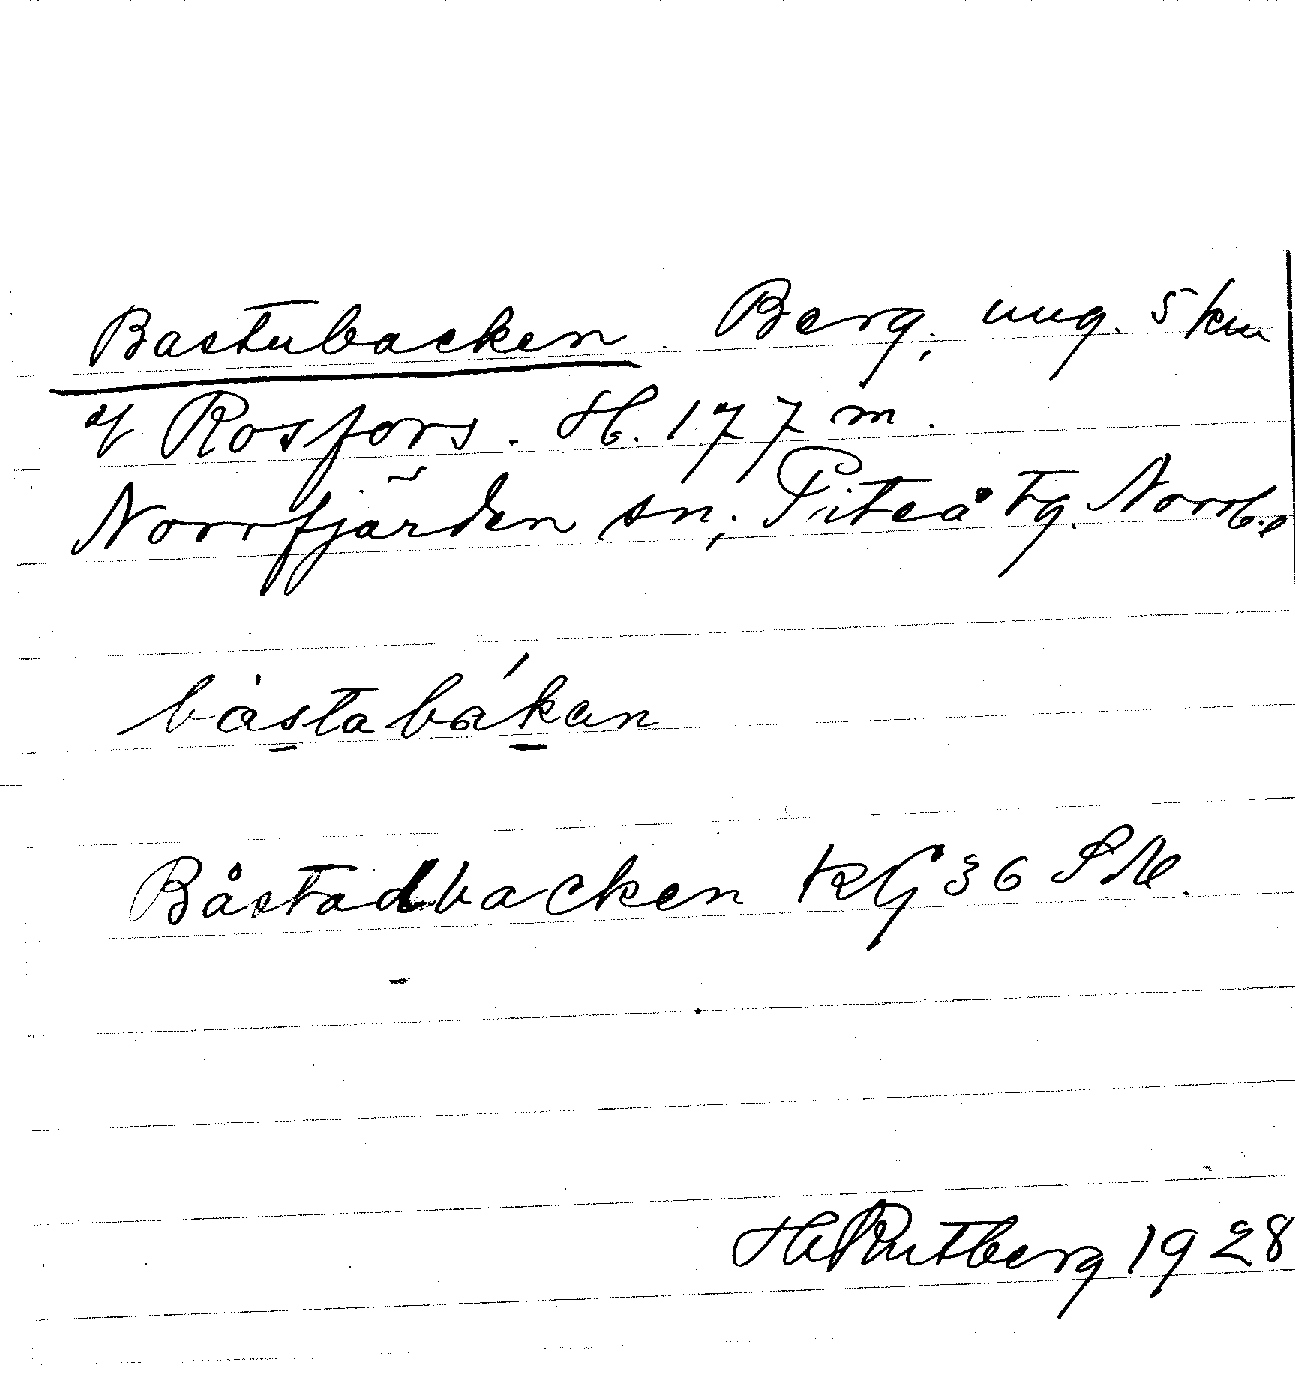 Bastubacken. Berg, ung. 5 km
af Rosfors. H. 177 m.
Norrfjärden sn, Piteå tg. Norrb.
bàstabákan
Båstadbacken KG 36 SM.
H Rutberg 1928